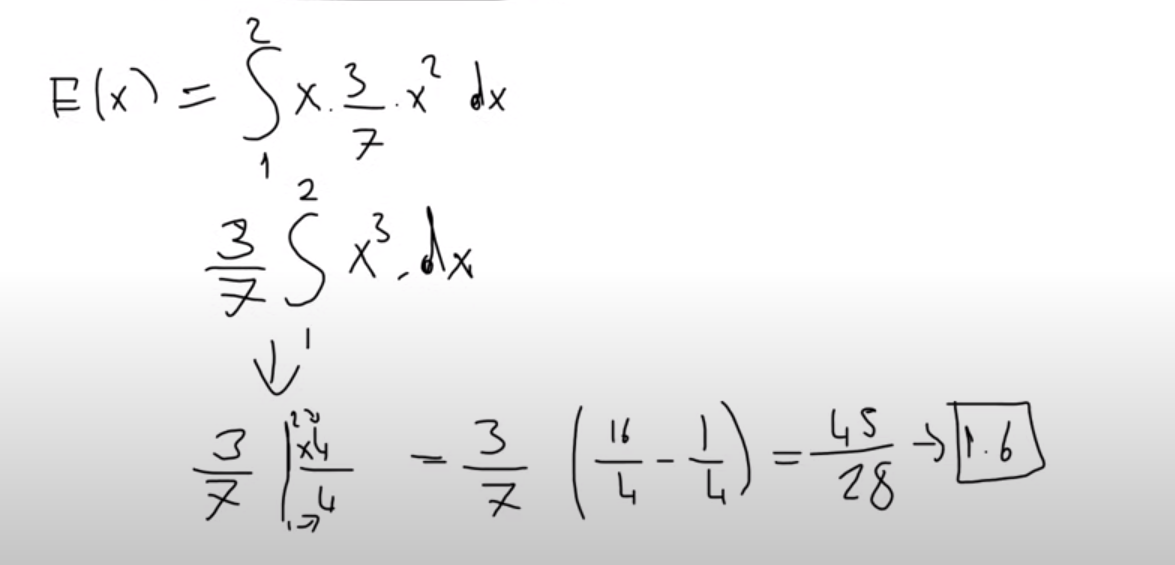 E(x) = ∫₁² x · 3/7 · x² dx
3/7 ∫₁² x³ . dx
↓
3/7 |₁→²↘ x4/4 = 3/7 (16/4 - 1/4) = 45/28 → 1.6